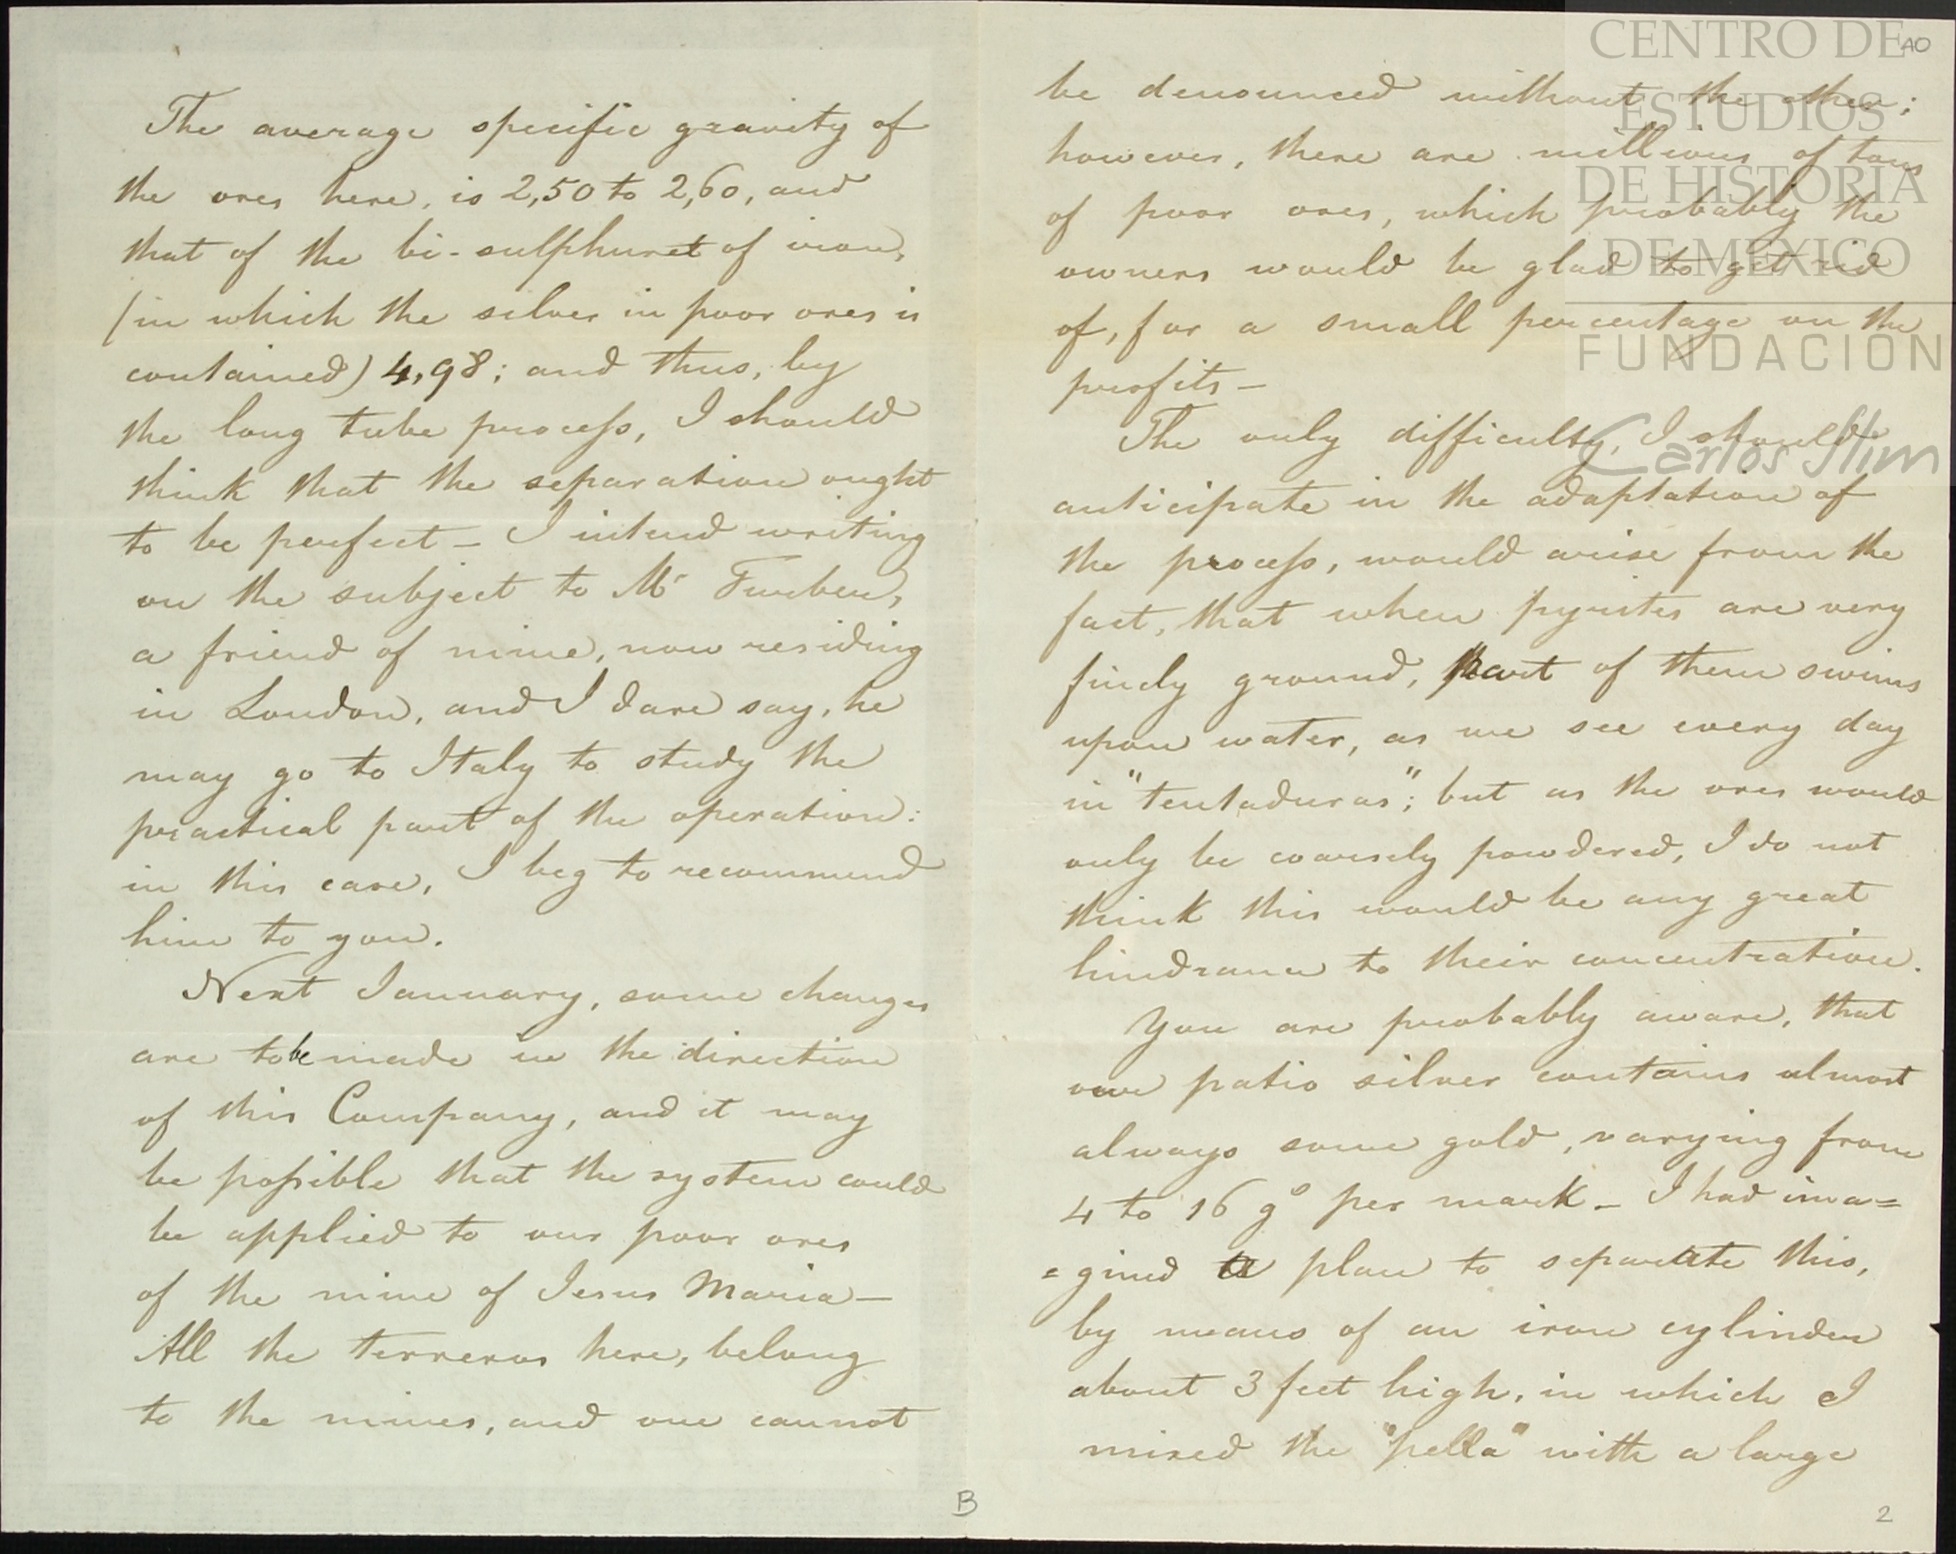 The average specific gravity of
the ores here, is 2,50 to 2,60, and
that of the bi-sulphuret of iron,
(in which the silver in poor ores is
contained) 4,98; and thus, by
the long tube process, I should
think that the separation ought
to be perfect — I intend writing
on the subject to Mr Furber,
a friend of mine, now residing
in London, and I dare say, he
may go to Italy to study the
practical part of the operation:
in this case, I beg to recommend
him to you.
Next January, some changes
are to be made in the direction
of this Company, and it may
be possible that the system could
be applied to our poor ores
of the mine of Jesus Maria —
All the terreros here, belong
to the mines, and one cannot
B
be denounced without the other;
however, there are millions of tons
of poor ores, which probably the
owners would be glad to get rid
of, for a small percentage on the
profits —
The only difficulty, I should
anticipate in the adaptation of
the process, would arise from the
fact, that when pyrites are very
finely ground, part of them swims
upon water, as we see every day
in "tentaduras"; but as the ores would
only be coarsely powdered, I do not
think this would be any great
hindrance to their concentration.
You are probably aware, that
our patio silver contains almost
always some gold, varying from
4 to 16 gs per mark — I had ima=
=gined a plan to separate this,
by means of an iron cylinder
about 3 feet high, in which I
mixed the "pella" with a large
2
AO
CENTRO DE
ESTUDIOS
DE HISTORIA
DE MEXICO
FUNDACIÓN
Carlos Slim